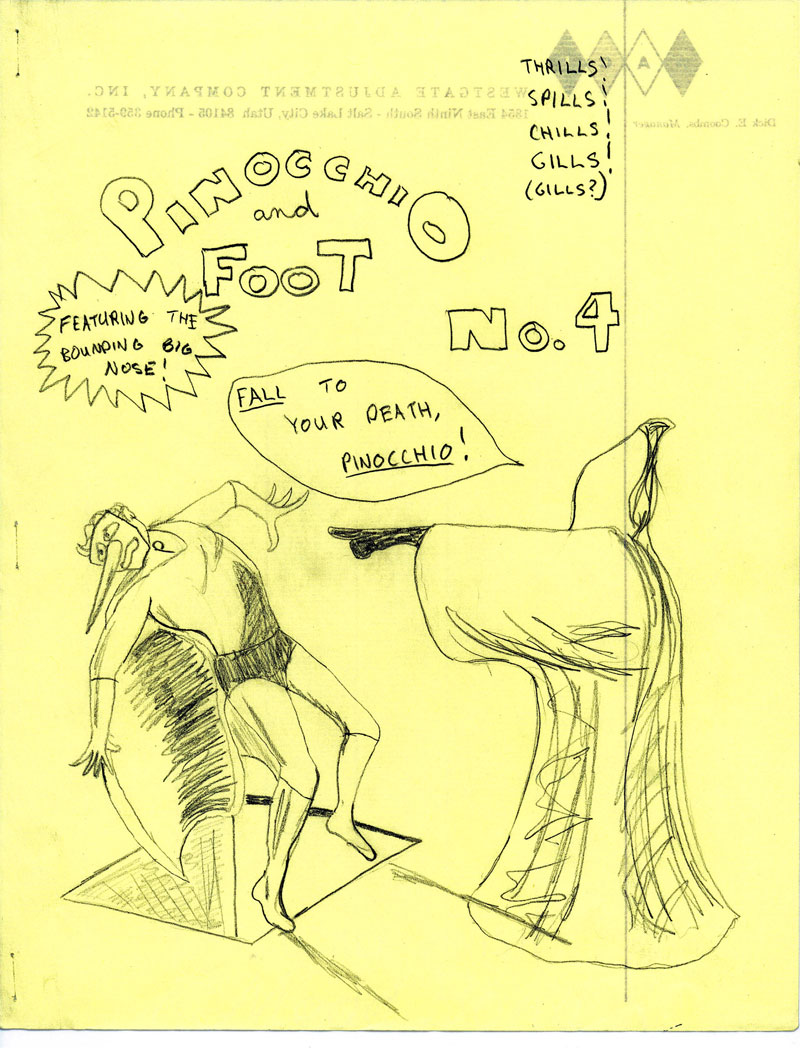 THRILLS!
SPILLS!
CHILLS!
GILLS!
(GILLS?)
WESTGATE ADJUSTMENT COMPANY, INC.
1854 East Ninth South - Salt Lake City, Utah 84105 - Phone 359-5142
Dick E. Coombs, Manager
A
PINOCCHIO
and
FOOT
No. 4
FEATURING THE
BOUNDING BIG
NOSE!
FALL TO
YOUR DEATH,
PINOCCHIO!
P